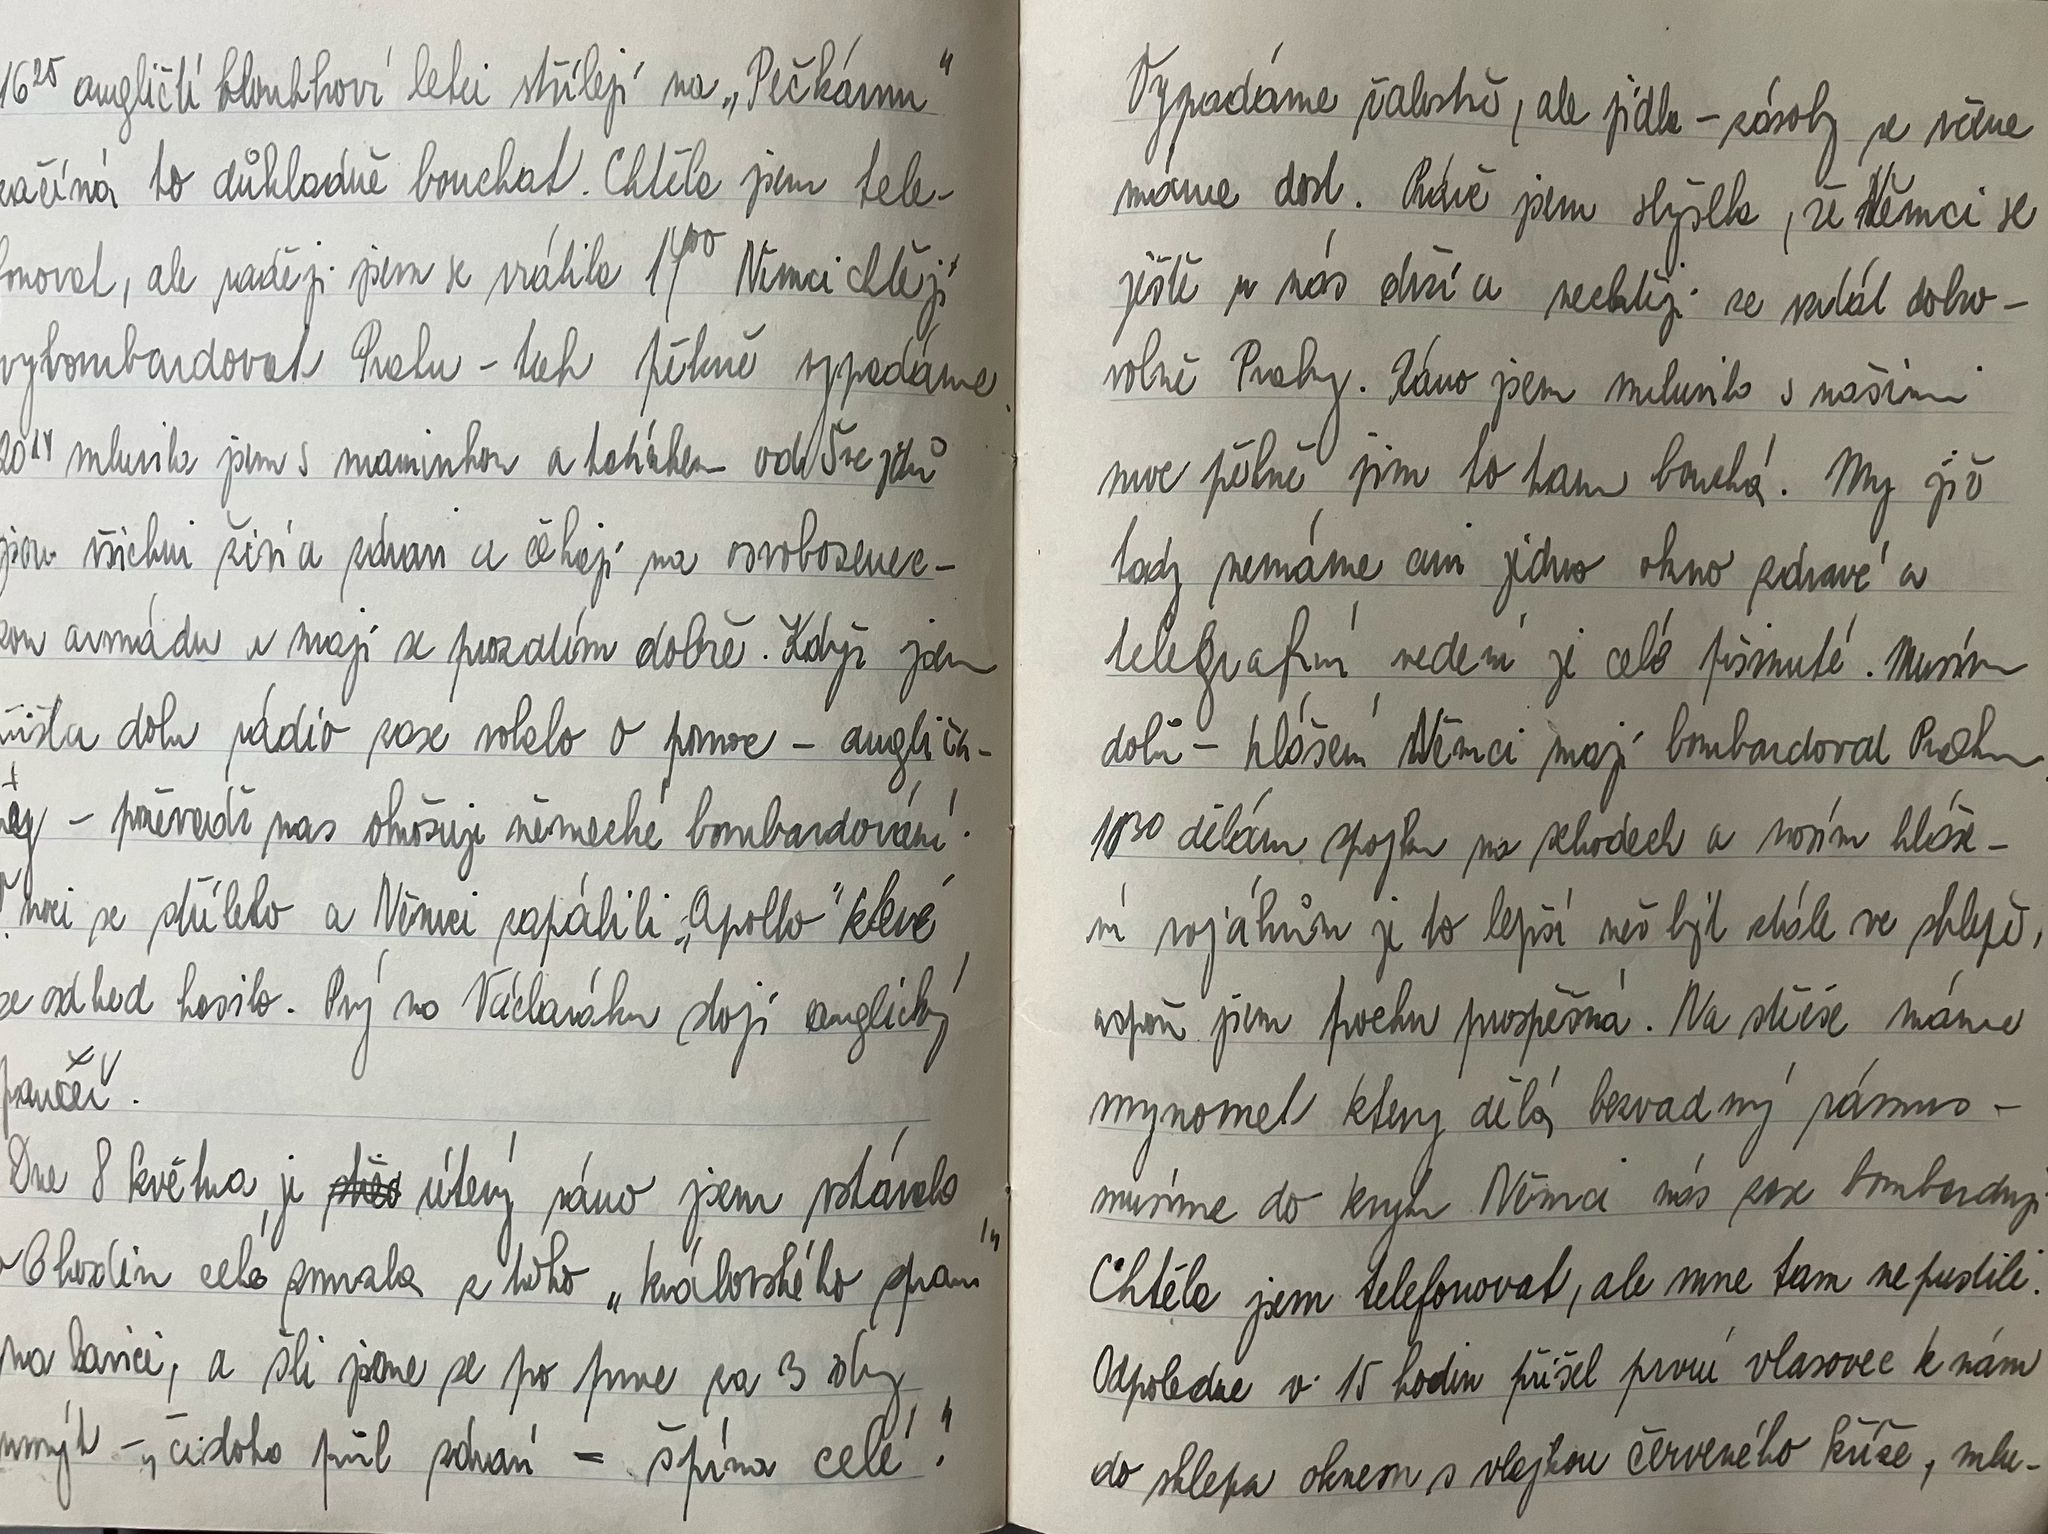 16²⁵ angličtí hloubkoví letci střílejí na „Pečkárnu"
začíná to důkladně bouchat. Chtěla jsem tele-
fonovat, ale raději jsem se vrátila 17⁰⁰ Němci chtějí
vybombardovat Prahu - tak pěkně vypadáme.
20¹⁴ mluvila jsem s maminkou a tatínkem od Švejdů
jsou všichni živí a zdraví a čekají na osvobozenec-
kou armádu a mají se prozatím dobře. Když jsem
přišla dolu rádio zase volalo o pomoc - anglick-
- převádí nas ohošuje německé bombardování.
V noci se střílelo a Němci zapálili „Apollo" které
se odhed hasilo. Prý na Václaváku stojí anglický
pančéř.
Dne 8 května, je úterý ráno jsem vstávala
v 6 hodin celá zmrzla z toho „královského spaní"
na lavici, a šli jsme se po prve za 3 dny
umýt - „čistota půl zdraví = špína celé!"
Vypadáme žalostně, ale jídla - zásoby se věcne
máme dost. Právě jsem slyšela, že Němci se
ještě u nás drží a nechtějí se vzdát dobro-
volně Prahy. Ráno jsem mluvila s našimi
moc pěkně jim to tam bouchá. My již
tady nemáme ani jedno okno zdravé a
telegrafní vedení je celé přervuté. Musím
dolů - hlášení Němci mají bombardovat Prahu.
10³⁰ dělám spojku na schodech a nosím hláše-
ní vojákům je to lepší než být stále ve sklepě,
aspoň jsem trochu prospěšná. Na střeše máme
mynomet ktery dělá bezvadný rámus -
musíme do krytu Němci nás zase bombardují
Chtěla jsem telefonovat, ale mne tam nepustili.
Odpoledne v 15 hodin přišel první vlasovec k nám
do sklepa oknem s vlajkou červeného kříže, mlu-